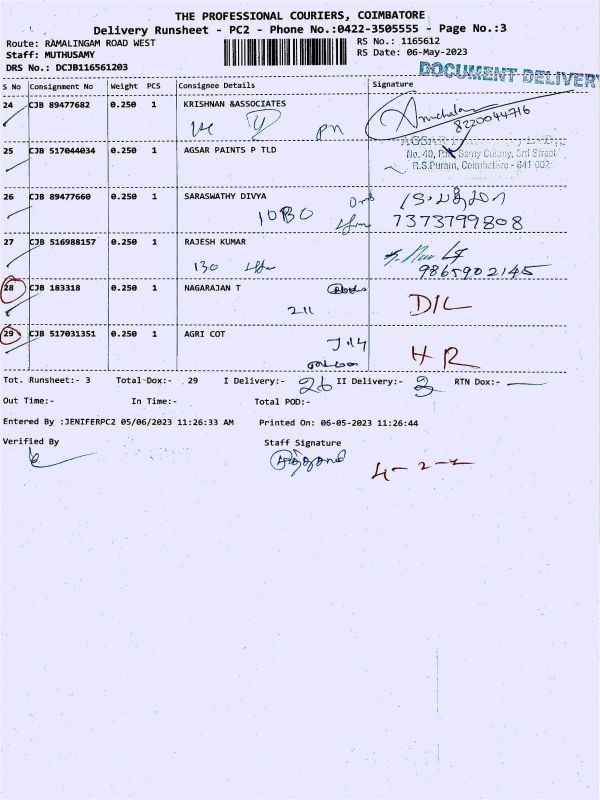 THE PROFESSIONAL COURIERS, COIMBATORE
Delivery Runsheet - PC2 - Phone No.:0422-3505555 - Page No.:3
Route: RAMALINGAM ROAD WEST
RS No.: 1165612
Staff: MUTHUSAMY
RS Date: 06-May-2023
DRS No.: DCJB116561203
DOCUMENT DELIVERY
S No Consignment No Weight PCS Consignee Details Signature
24 CJB 89477682 0.250 1 KRISHNAN &ASSOCIATES
8220044716
25 CJB 517044034 0.250 1 AGSAR PAINTS P TLD
No. 40, P.M. Samy Colony, 3rd Street
R.S.Puram, Coimbatore - 641 002
26 CJB 89477660 0.250 1 SARASWATHY DIVYA
1080
7373799808
27 CJB 516988157 0.250 1 RAJESH KUMAR
130
9865902145
28 CJB 183318 0.250 1 NAGARAJAN T
211
D/L
29 CJB 517031351 0.250 1 AGRI COT
HR
Tot. Runsheet:- 3 Total Dox:- 29 I Delivery:- 26 II Delivery:- 3 RTN Dox:-
Out Time:- In Time:- Total POD:-
Entered By :JENIFERPC2 05/06/2023 11:26:33 AM Printed On: 06-05-2023 11:26:44
Verified By Staff Signature